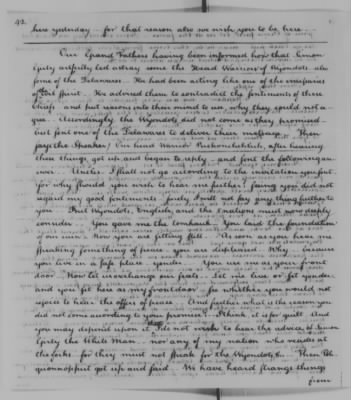 42.
here yesterday - for that reason also we wish you to be here.
Our Grand Fathers having been informed how that Simon
Girty artfully led astray some the Head Warriors of Wyondots also
some of the Delawares. We had been acting like one of the emissaries
of evil spirit. We advised them to contradict the sentiments of three
Chiefs and put reasons into their mind to use, why they could not a-
gree. Accordingly the Wyondots did not come as they promised -
but sent one of the Delawares to deliver their message. Then
says the Speaker/ Our head Warrior Puckonchehluh, after hearing
these things got up and began to reply - and sent the following an-
swer. Uncles. I shall not go according to the invitation you sent,
for why should you wish to hear me further? seeing you did not
regard my good sentiments, surely I will not say any thing further to
you. But Wyondots, English, and the Nations must now supply
consider. You gave me the tomhauk. You laid the foundation
of our ruin. Now you are sitting still. As soon as you hear me
speaking something of peace you are displeased. Why. because
you live in a safe place yonder. You use me as your front
door. Now let us exchange our seats. Let me live as yet yonder
and you sit here as my front door. See whether you would not
rejoice to hear the offers of peace. And further what is the reason you
did not come according to your promise. I think, it is for guilt. And
you may depend upon it I do not wish to hear the advice of Simon
Girty the White Man. nor any of my nation who resides at
the forks. for they must not speak for the Wyondots &c. Then
got up and said. We have heard strange things
from